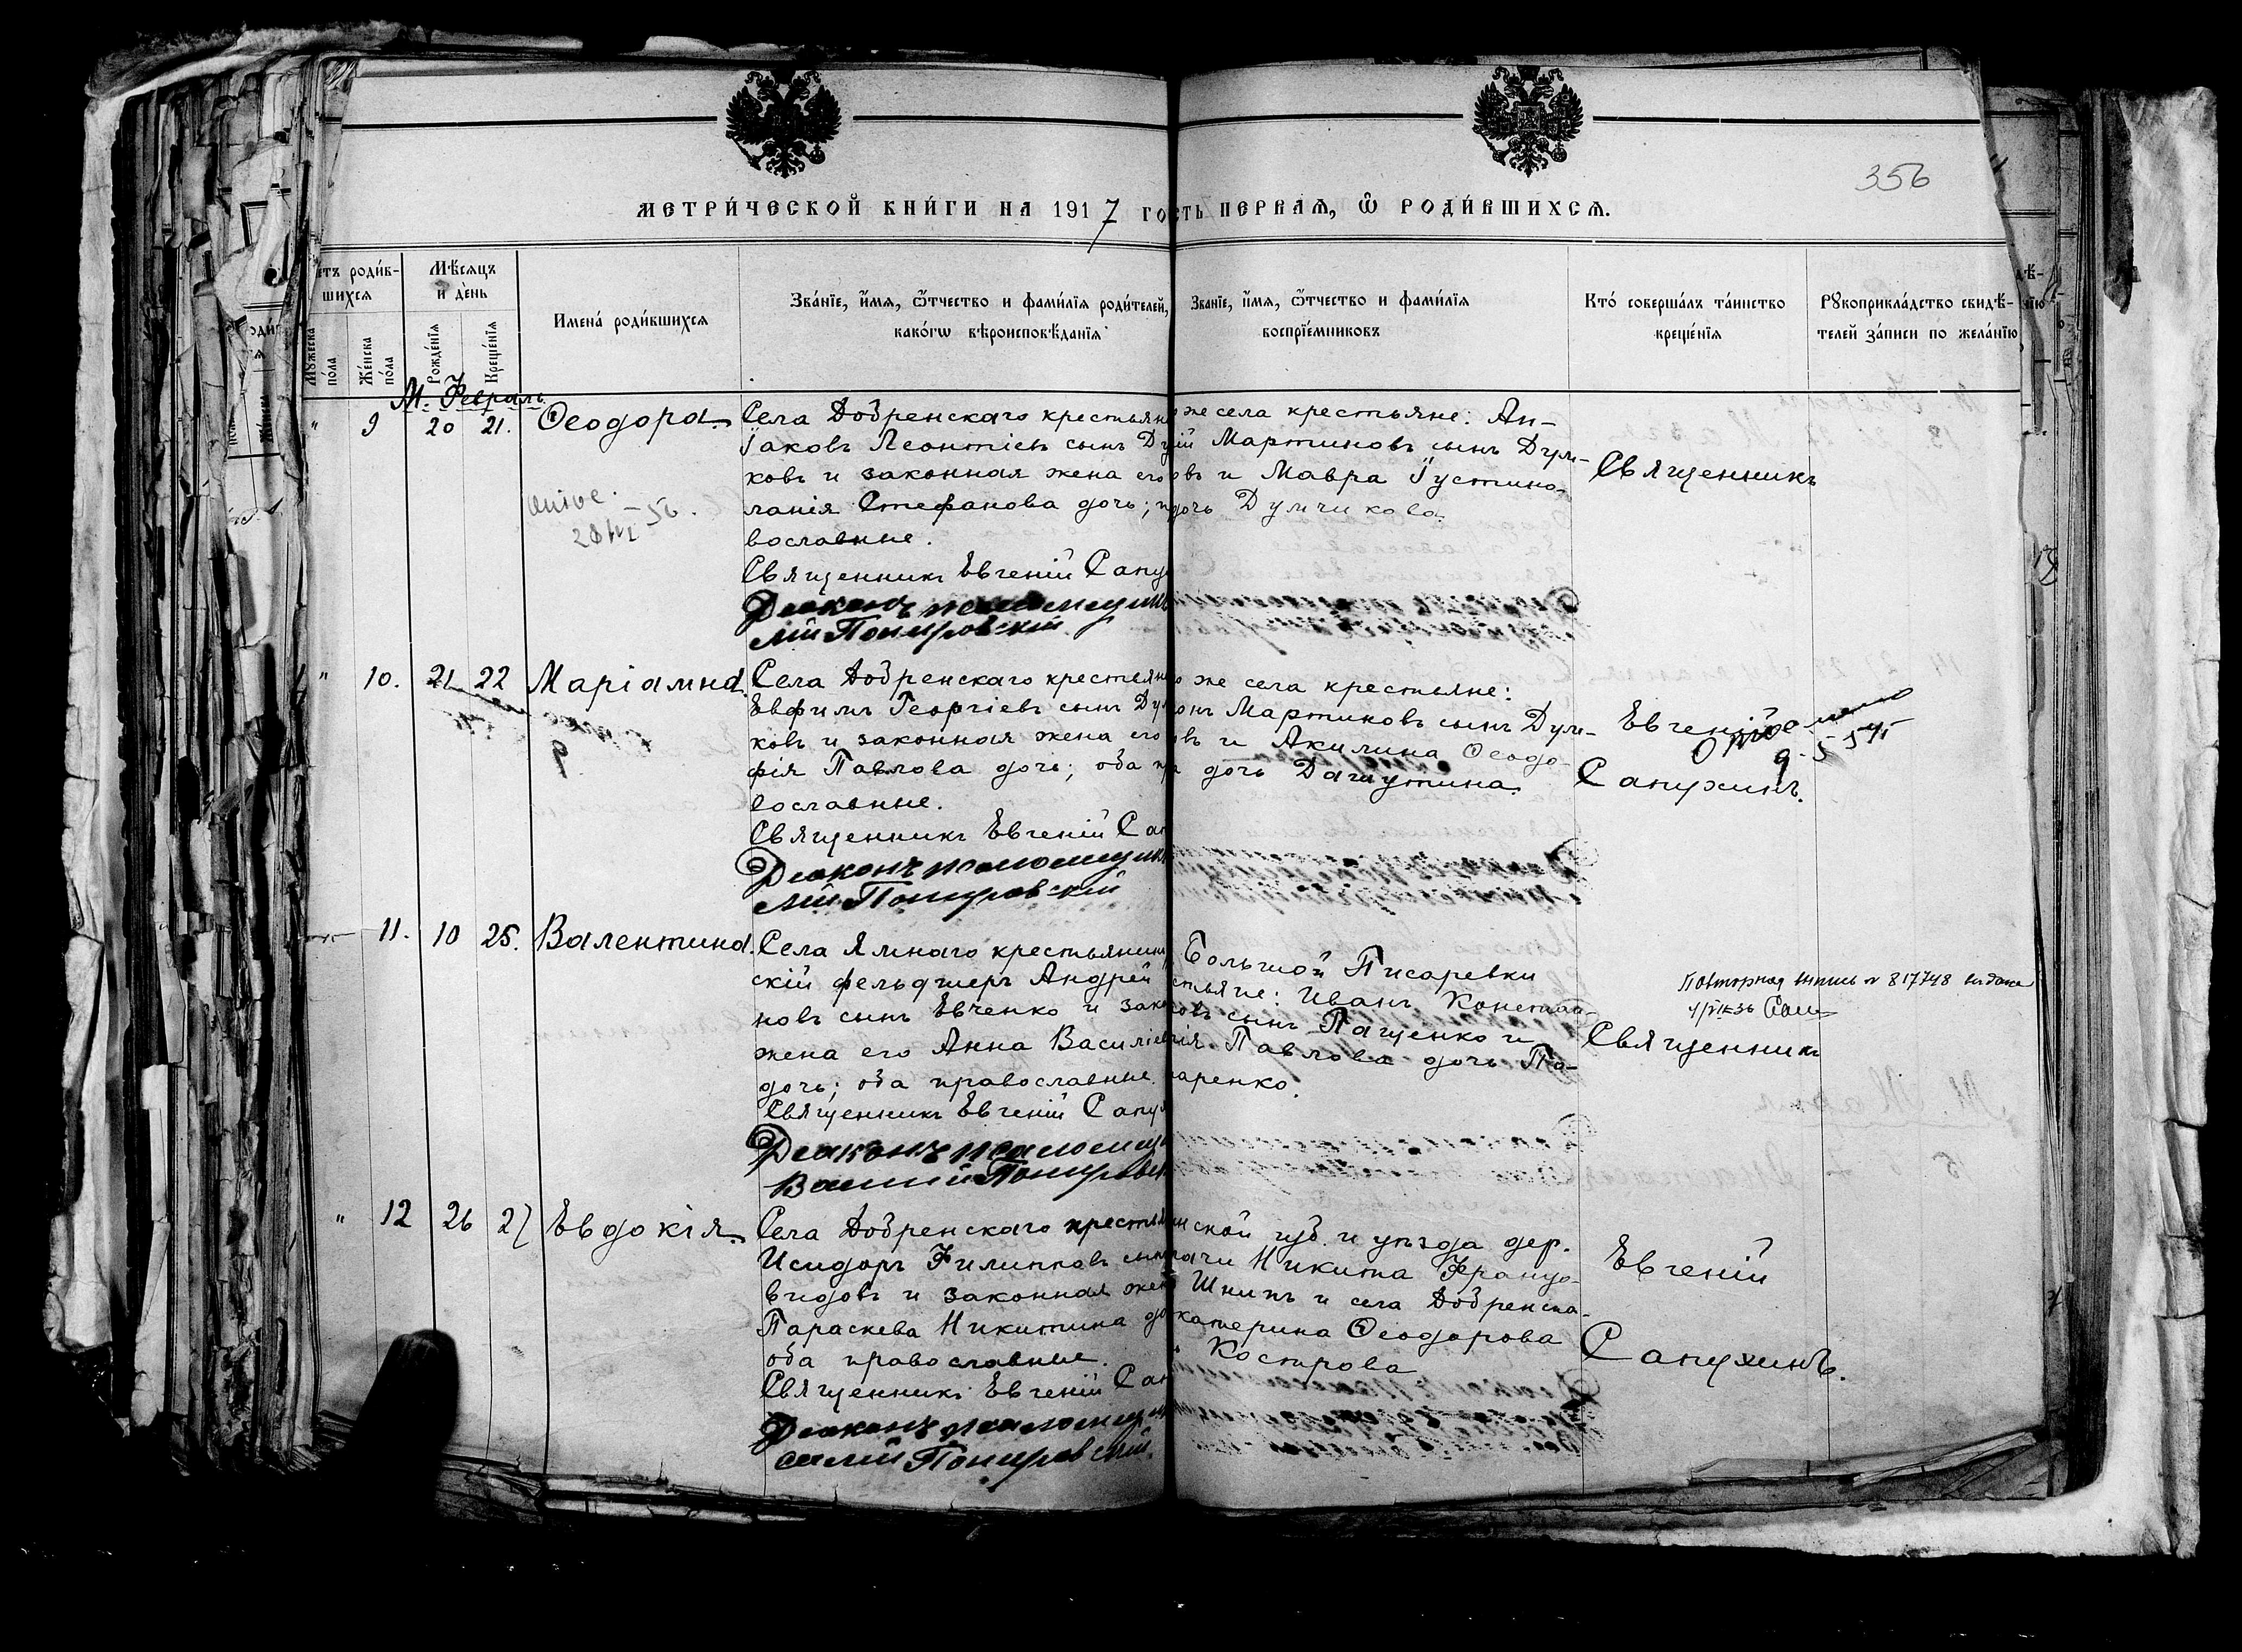 356
МЕТРИ́ЧЕСКОЙ КНИ́ГИ НА 1917 ГО
СТЬ ПЕРВАЯ, Ѿ РОДИ́ВШИХСЯ.
етъ роди́в-
шихся
Мꙋ́жеска по́ла
Же́нска по́ла
Мѣ́сяцъ
и де́нь
Рожде́нїя
Креще́нїя
Имена́ роди́вшихся
Зва́нїе, и́мя, ѻ҆́тчество и фами́лїя роди́телей,
како́гѡ вѣроисповѣ́данїя
Званїе, и́мя, ѻ҆́тчество и фами́лїя
воспрїе́мниковъ
Кто́ соверша́лъ та́инство
креще́нїя
Рꙋкоприкла́дство свидѣ́-
телей за́писи по жела́нїю
М. Февраль
" 9 20 21. Ѳеодора.
Села Добренскаго крестьян
Іаковъ Леонтіевъ сынъ Ду
ковъ и законная жена его
ланія Стефанова дочь; п
вославные.
Священникъ Евгеній Сапу
Діаконъ псаломщик
лій Понировскій
же села крестьяне: Ан-
ій Мартиновъ сынъ Дум-
овъ и Мавра Іустино-
дочь Думчикова.
Священникъ
" 10. 21 22 Маріамна.
Села Добренскаго крестьян
Евфимъ Георгіевъ сынъ Ду
ковъ и законная жена его
фія Павлова дочь; оба пр
вославные.
Священникъ Евгеній Сап
Діаконъ псаломщик
лій Понировскій
о же села крестьяне:
онъ Мартиновъ сынъ Дум-
овъ и Акилина Ѳеодо-
а дочь Дашутина.
Евгеній
Сапухинъ.
11. 10 25. Валентина.
Села Ямнаго крестьянин
скій фельдшеръ Андрей
новъ сынъ Евченко и зако
жена его Анна Василіев
дочь; оба православные.
Священникъ Евгеній Сапу
Діаконъ псаломщ
Василій Понировск
Большой Писаревки
стьяне: Иванъ Констан-
овъ сынъ Пащенко и
рія Павлова дочь По-
аренко.
Повторная выпись № 817748 выдана
Священникъ
" 12 26 27 Евдокія.
Села Добренскаго крестья
Исидоръ Филипповъ сын
видовъ и законная жен
Параскева Никитина до
оба православные.
Священникъ Евгеній Сап
Діаконъ псаломщик
силій Понировскій.
нской губ. и уѣзда дер.
ачи Никита Францо-
Шнипъ и села Добренска-
катерина Ѳеодорова
Кострова
Евгеній
Сапухинъ.